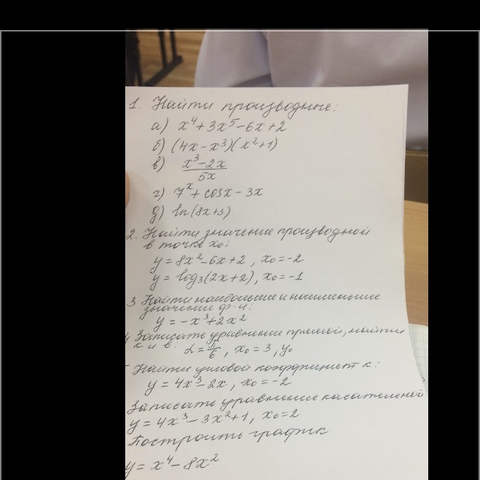 1. Найти производные:
а) x⁴+3x⁵-6x+2
б) (4x-x³)(x²+1)
в) x³-2x
5x
г) 7ˣ+cosx-3x
д) ln(8x+3)
2. Найти значение производной
в точке x₀:
y=8x²-6x+2, x₀=-2
y=log₃(2x+2), x₀=-1
3 Найти наибольшее и наименьшее
значение ф-и:
y=-x³+2x²
Записать уравнение прямой, найти
к и в: x₀=3, y₀
Найти угловой коэффициент к:
y=4x³-2x, x₀=-2
Записать уравнение касательной
y=4x³-3x²+1, x₀=2
Построить график
y=x⁴-8x²